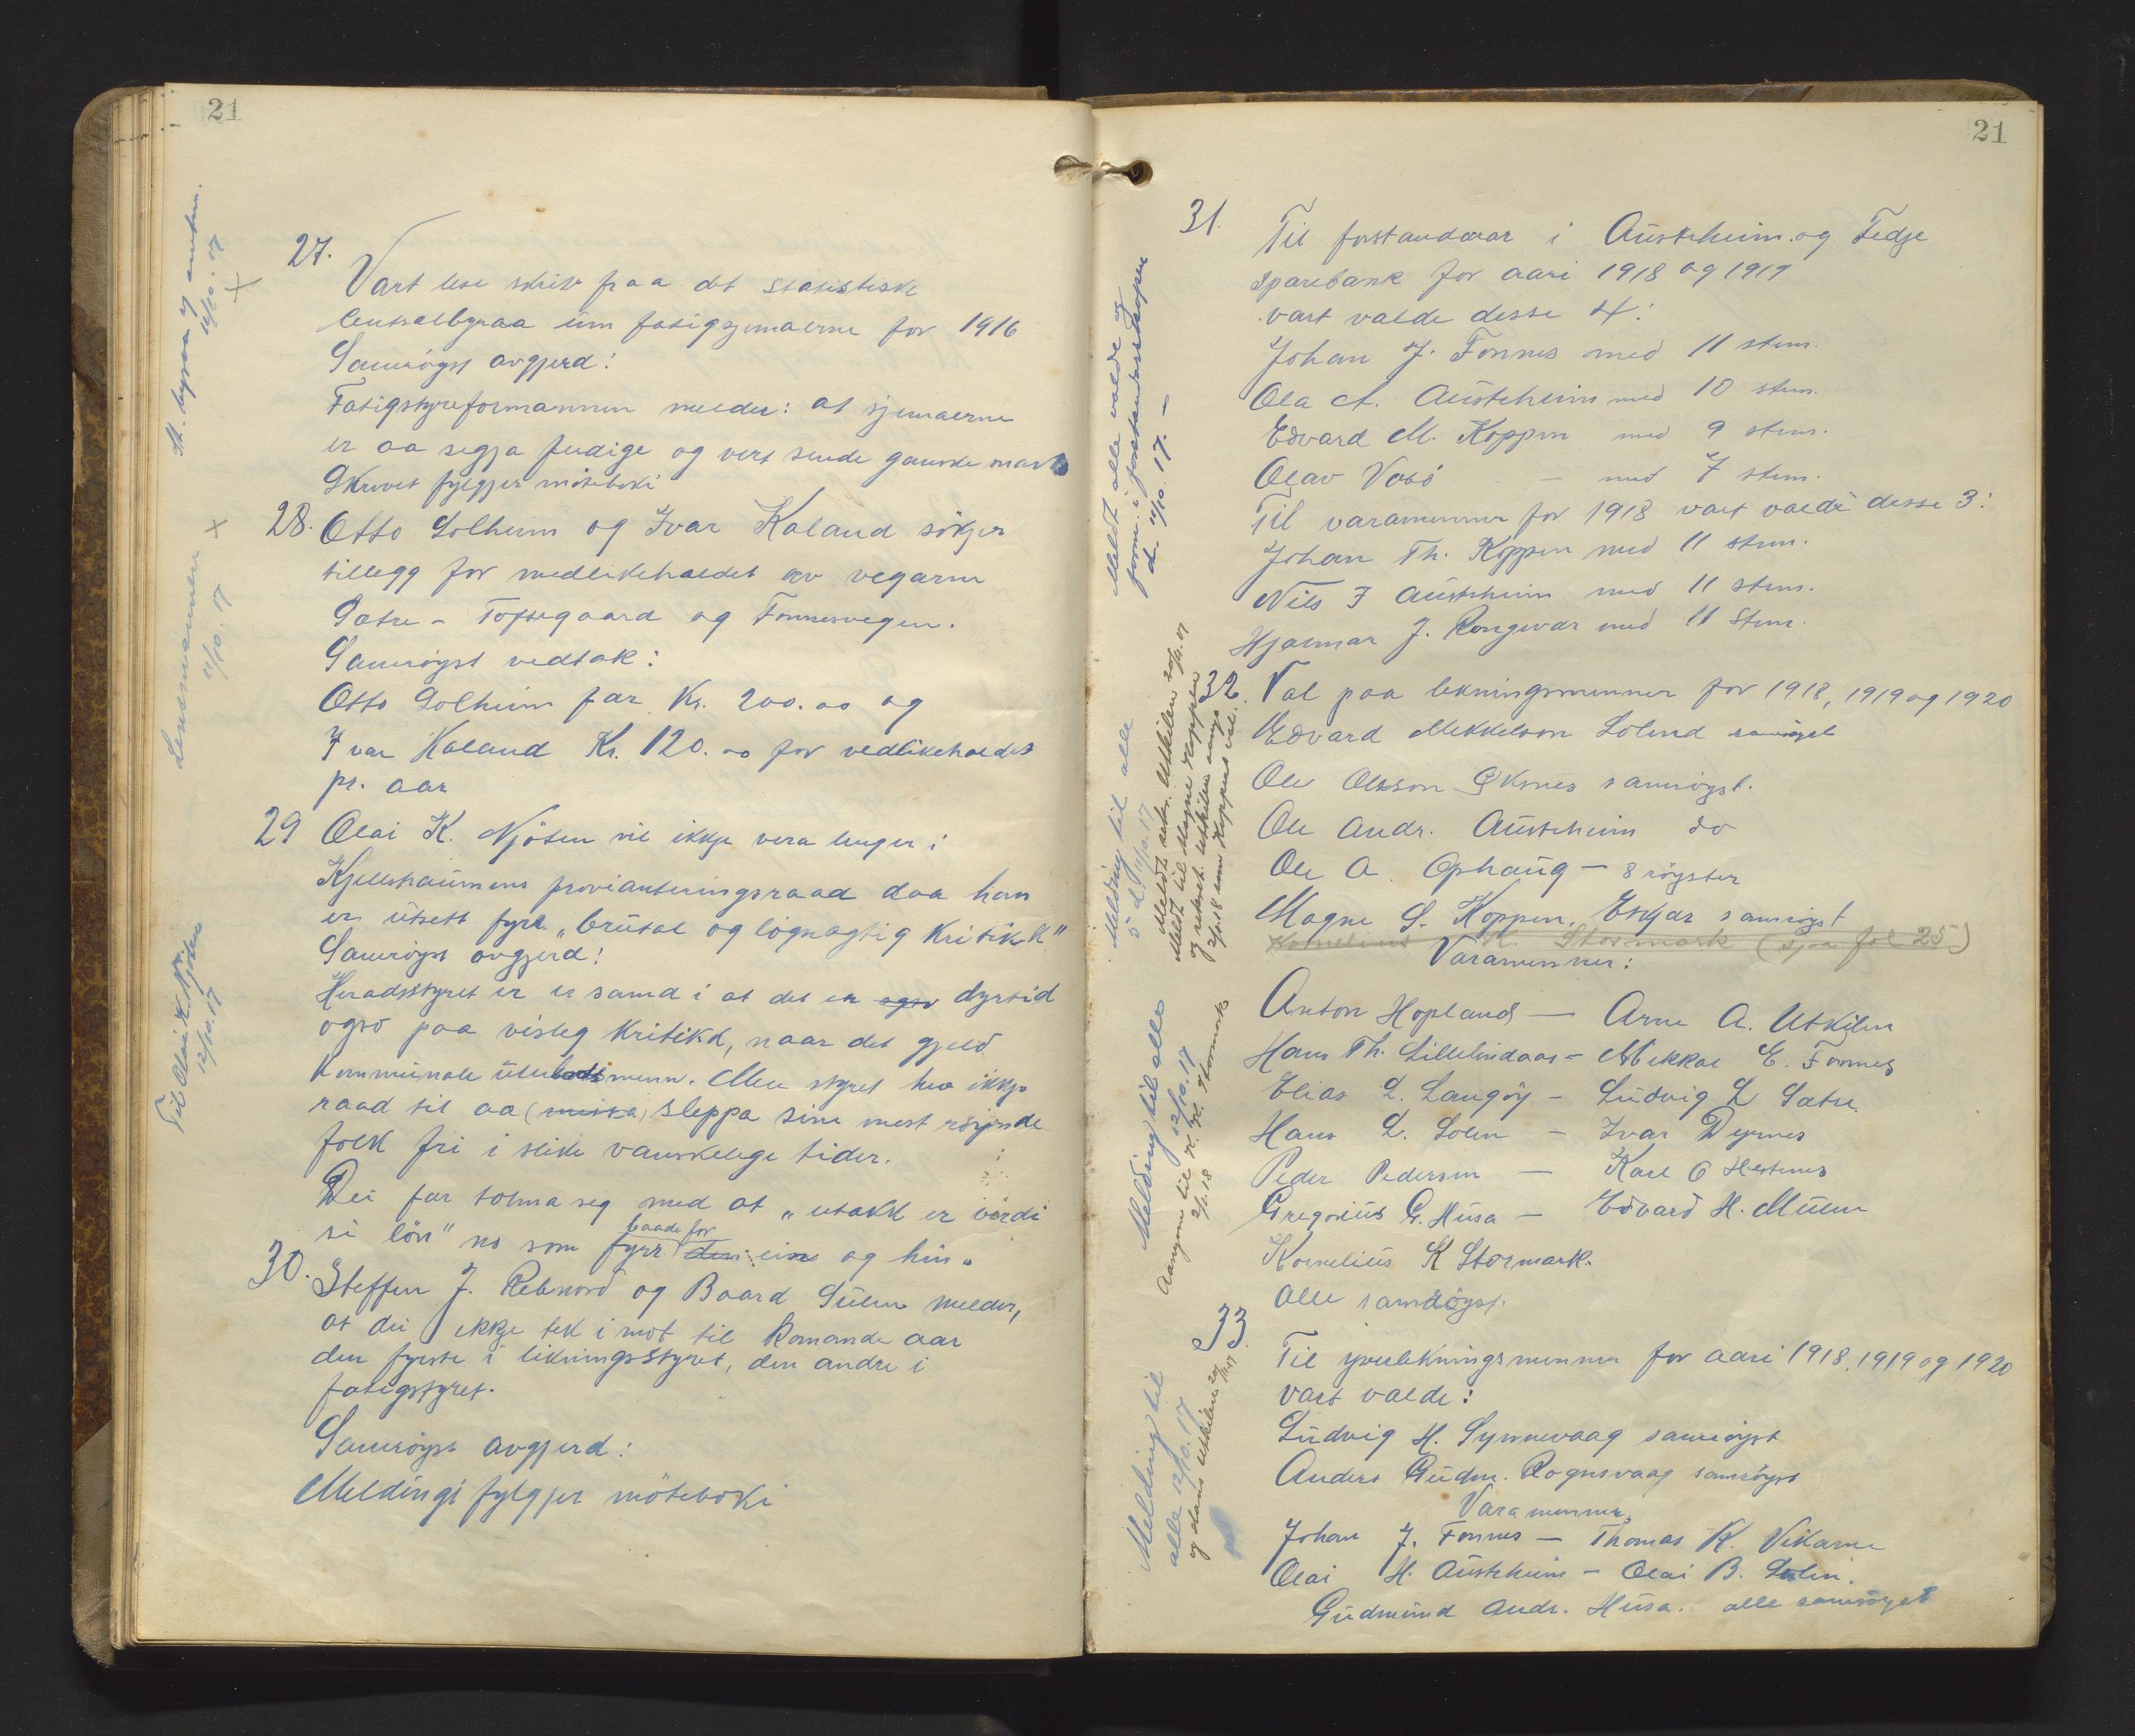 21
27.
Vart lese skriv fraa det statistiske
Centralbyraa um fatigsjemaerne for 1916
Samröyst avgjerd:
Fatigstyreformannen melder: at sjemaerne
er aa segja ferdige og vert sende ganske snart
Skrivet fylgjer möteboki
28. Otto Solheim og Ivar Kaland sökjer
tillegg for medlikehaldet av vegarne
Sætre - Toftegaard og Fonnesvegen.
Samröyst vedtak:
Otto Solheim far Kr. 200.00 og
Ivar Kaland Kr. 120.00 for vedlikehaldet
pr. aar
29 Olai K. Njöten vil ikkje vera lenger i
Kjelstraumens provianteringsraad daa han
er utsett fyre „brutal og lognagtig Kritikk"
Samröyst avgjerd:
Heradsstyret er er samd i at det er ogso dyrtid
ogso paa visleg Kritikk, naar det gjeld
Kommunale menn. Men styret hev ikkje
raad til aa (missa) sleppa sine mest röynde
folk fri i slike vanskelege tider.
Dei far tolma seg med at „utakk er verdi
baade for
si lön" no som fyrr den eine og hin.
30. Steffen J. Rebnord og Baard Sulen melder,
at dei ikkje tek i mot til komande aar
den fyrste i likningsstyret, den andre i
fatigstyret.
Samröyst avgjerd:
Meldingi fylgjer möteboki
St. byraa
12/10.17
X
Lensmannen X
12/10.17
Til Olai K. Njöten
12/10.17
21
31.
Til forstandarar i Austrheim og Fedje
Sparebank for aari 1918 og 1919
vart valde desse 4:
Johan J. Fonnes med 11 stem.
Ola A. Austrheim med 10 stem.
Edvard M. Koppen med 9 stem.
Olav Vabö - med 7 stem.
Til varamenner for 1918 vart valde desse 3:
Johan Th. Koppen med 11 stem.
Nils J Austrheim med 11 stem.
Hjalmar J. Rongevær med 11 stem.
32. Val paa likningsmenner for 1918, 1919 og 1920
Edvard Mikkelson Solend samröyst
Ole Olsson Öksnes samröyst.
Ole Andr. Austrheim do
Ole A. Ophaug - 8 röyster
Magne S. Koppen, samröyst
Kornelius K. Stormark (sjaa fol 25)
Varamenner:
Anton Hopland - Arne A. Utkilen
Hans Th. Lillelindaas - Mikkal E. Fonnes
Elias L. Langöy - Ludvig L Sætre
Hans L. Solen - Ivar Dyrnes
Peder Pedersen - Karl O Hestnes
Gregorius G. Husa - Edvard H. Mulen
Kornelius K Stormark.
Alle samröyst.
33.
Til yverlikningsmenner for aari 1918, 1919 og 1920
vart valde:
Ludvig H. Synnevaag samröyst
Anders Gudm. Rognsvaag samröyst
Varamenner
Johan J. Fonnes - Thomas K. Vikane
Olai H. Austrheim - Olai B. Sulen.
Gudmund Andr. Husa. alle samröyst
Meldt i alle valde og
form. i forstandarskapen
d. 12/10.17. -
Melding til alle
d 12/10.17
Meldt Utkilen
Meldt til Magne Koppen
2/1.18 Koppens val.
Melding til alle
12/10.17
til K. K. Stormark
2/1.18
Melding til
alle 12/10.17
Utkilen